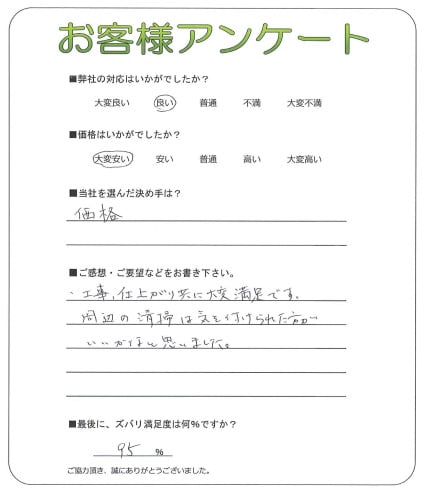 お客様アンケート
■弊社の対応はいかがでしたか？
大変良い 良い 普通 不満 大変不満
■価格はいかがでしたか？
大変安い 安い 普通 高い 大変高い
■当社を選んだ決め手は？
価格
■ご感想・ご要望などをお書き下さい。
・工事、仕上がり共に大変満足です。
周辺の清掃は気を付けられた方が
いいかなと思いました。
■最後に、ズバリ満足度は何％ですか？
95 ％
ご協力頂き、誠にありがとうございました。